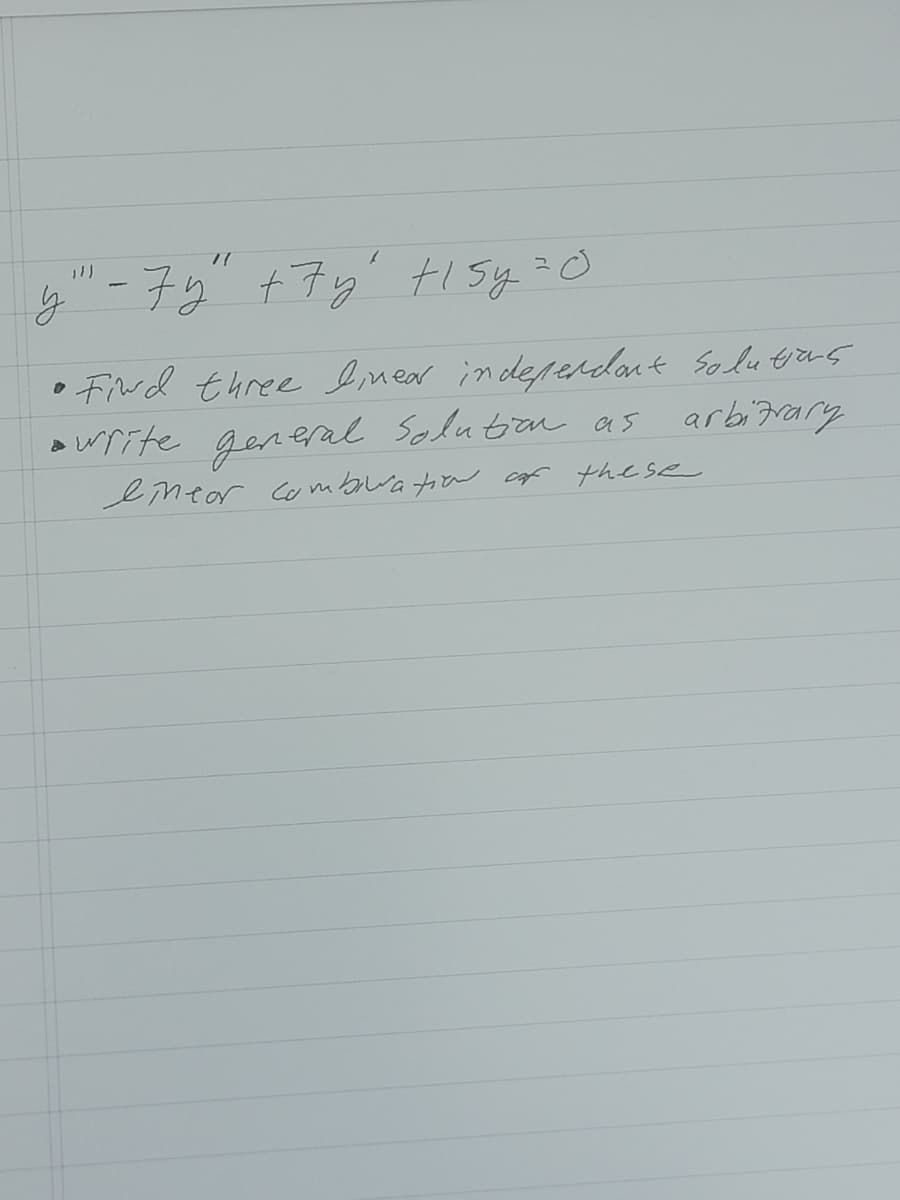 y''' - 7y'' + 7y' + 15y = 0
• Find three linear independant solutions
• write general solution as arbitrary
linear combination of these